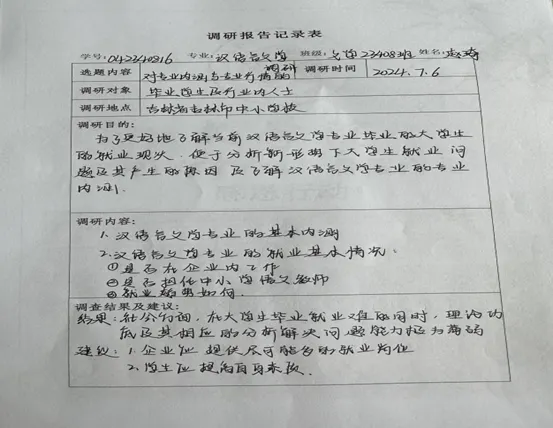 调研报告记录表
学号:042340816 专业:汉语言文学 班级:文学23408班 姓名:
选题内容 对专业内涵与专业行情的调研 调研时间 2024.7.6
调研对象 毕业学生及行业内人士
调研地点 吉林省吉林市中小学校
调研目的:
为了更好地了解当前汉语言文学专业毕业的大学生
的就业现状,便于分析新形势下大学生就业问
题及其产生的原因 及了解汉语言文学专业的专业
内涵.
调研内容:
1.汉语言文学专业的基本内涵
2.汉语言文学专业的就业基本情况.
①是否在企业内工作
②是否担任中小学语文教师
③就业前景如何.
调查结果及建议:
结果:社会方面,在大学生毕业就业难的同时,理论功
底及其相应的分析解决问题能力极为薄弱
建议:1.企业应提供尽可能多的就业岗位
2.学生应提高自身素质.